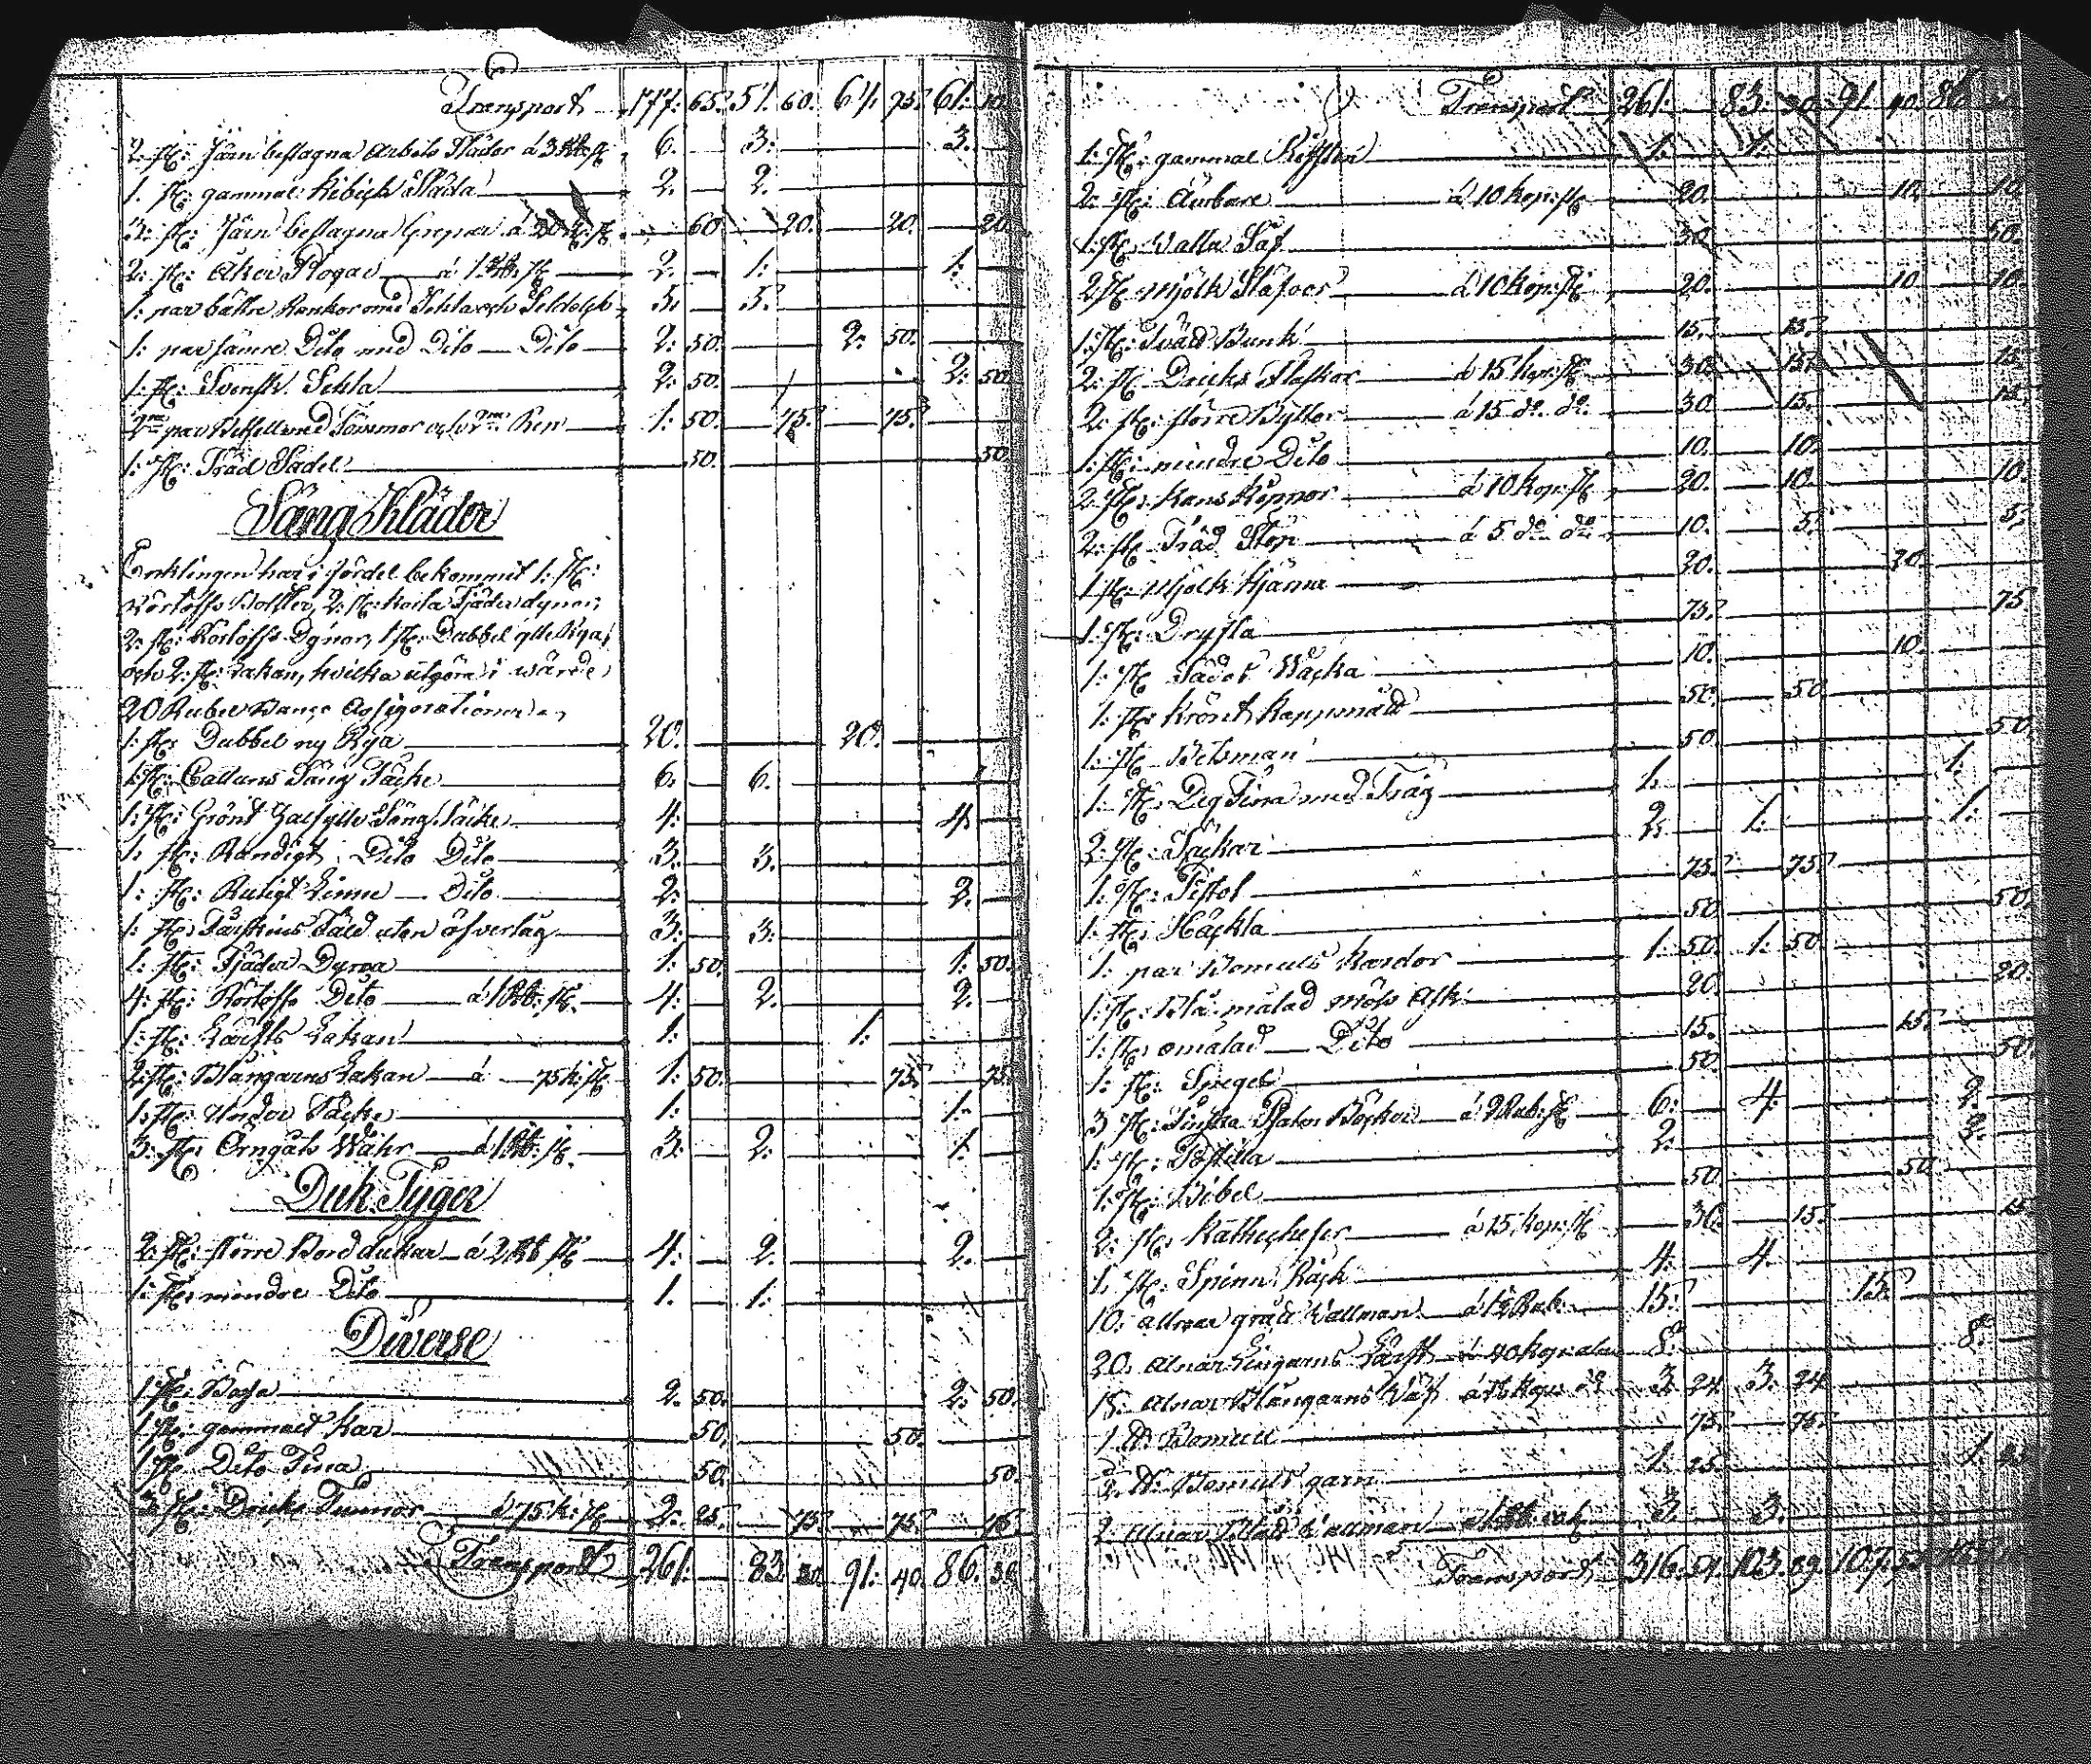 Transport 177: 65. 51. 60. 67. 75. 61. 10.
2. st: Järn beslagna Arbets Slädor á 3 Rub. st 6. 3. 3.
1. st: gammal Kibick Släda 2. 2.
3: st: Järn beslagna Grepar á 20 k. st 60 20. 20. 20.
2: st: Åker Plogar á 1 Rub. st 2. 1: 1:
1: par bättre Rankor med Sehla och 5. 5.
1: par sämre Dito med Dito Dito 2: 50. 2: 50.
1: st: Svensk Sehla 2: 50. 2: 50.
par med Tömmar och Rep 1: 50. 75. 75.
1: st: Träd Sadel 50. 50.
Säng Kläder
Encklingen har i fördel bekommit 1: st:
Rörtofts Bolster, 2: st: Fjäder dynor,
2: st: Rörtofts Dynor, 1 st: Dubbel ylle Rya,
och 2: st: Lakan, hvilka utgöra i wärde
20 Rubel Banco Assignationer
1: st: Dubbel ny Rya 20. 20.
1: st: Cattuns Säng Täcke 6. 6.
1: st: Grönt Halfylle Säng Täcke 4. 4.
1: st: Randigt Dito Dito 3. 3.
1: st: Rutigt Linne Dito 2. 2.
1: st: Fårskins Fäld utan öfverlag 3: 3:
1: st: Fjäder Dyna 1: 50. 1: 50.
4: st: Rörtofts Dito á 1 Rub: st 4: 2. 2.
1: st: Lärfts Lakan 1: 1:
2: st: Blångarns Lakan á 75 k: st 1: 50. 75. 75.
1: st: Under Täcke 1: 1.
3: st: Örngåts Wåhr á 1 Rub: st. 3: 2: 1:
Duk Tyger
2: st: större Bord dukar á 2 Rub st 4: 2. 2.
1: st: mindre Dito 1. 1:
Diverse
1 st: 2. 50. 2: 50.
1 st: gammalt Kar 50. 50.
1 st: Dito Tina 50. 50.
3: st: Dricks Tunnor á 75 k: st 2: 25. 75. 75. 75.
Transport 261. 83. 20. 91: 40. 86. 30.
Transport 261. 83. 20. 91. 40. 86.
1: st: gammal 1. 1.
2: st: Ämbare á 10 kop: st 20. 10. 10.
1: st: Watta Såf 50. 50.
2 st Mjölk Stäfvor á 10 kop: st 20. 10. 10.
1: st: Bunk 15. 15.
2: st Dricks Flaskor á 15 kop: st 30. 15. 15.
2: st: större Byttor á 15 do. do. 30. 15. 15.
1: st: mindre Dito 10. 10.
2: st: Kannor á 10 kop: st 20. 10. 10.
2: st Träd Stop á 5 do do 10. 5. 5.
1 st: Mjölk Kjärna 20. 20.
1: st: Dryfta 75. 75
1: st Sädes Wacka 10. 10.
1: st: Krönt Kappmått 50. 50
1: st: Betsman 50. 50.
1: st: Deg Tina med Tråg 1. 1.
2: st: Säckar 2. 1: 1:
1: st: Pistol 75. 75.
1: st: Häckla 50. 50.
1: par Bomuls Kardor 1. 50. 1: 50.
1: st: Blå målad möss Ask 20. 20.
1: st: omålad Dito 15. 15.
1: st: Spegel 50. 50.
3 st: Finska Psalm Böcker á 2 Rub: st 6: 4. 2.
1: st: Postilla 2: 2.
1: st: Bibel 50 50
2: st: Kattecheser á 15 kop: st 30. 15. 15
1: st: Spinn Råck 4. 4.
10: allnar grått Wallman á 1½ Rub. 15: 15.
20: alnar Lingarns Lärft á 40 kop: aln 8: 8.
18: alnar Blångarns Wäf á 18 kop: do 3. 24. 3. 24
1 Bomull 75. 75.
Bomuls garn 1. 25. 1. 25
2 alnar Wallman 3. 3.
Transport 316. 54. 103. 89. 107.